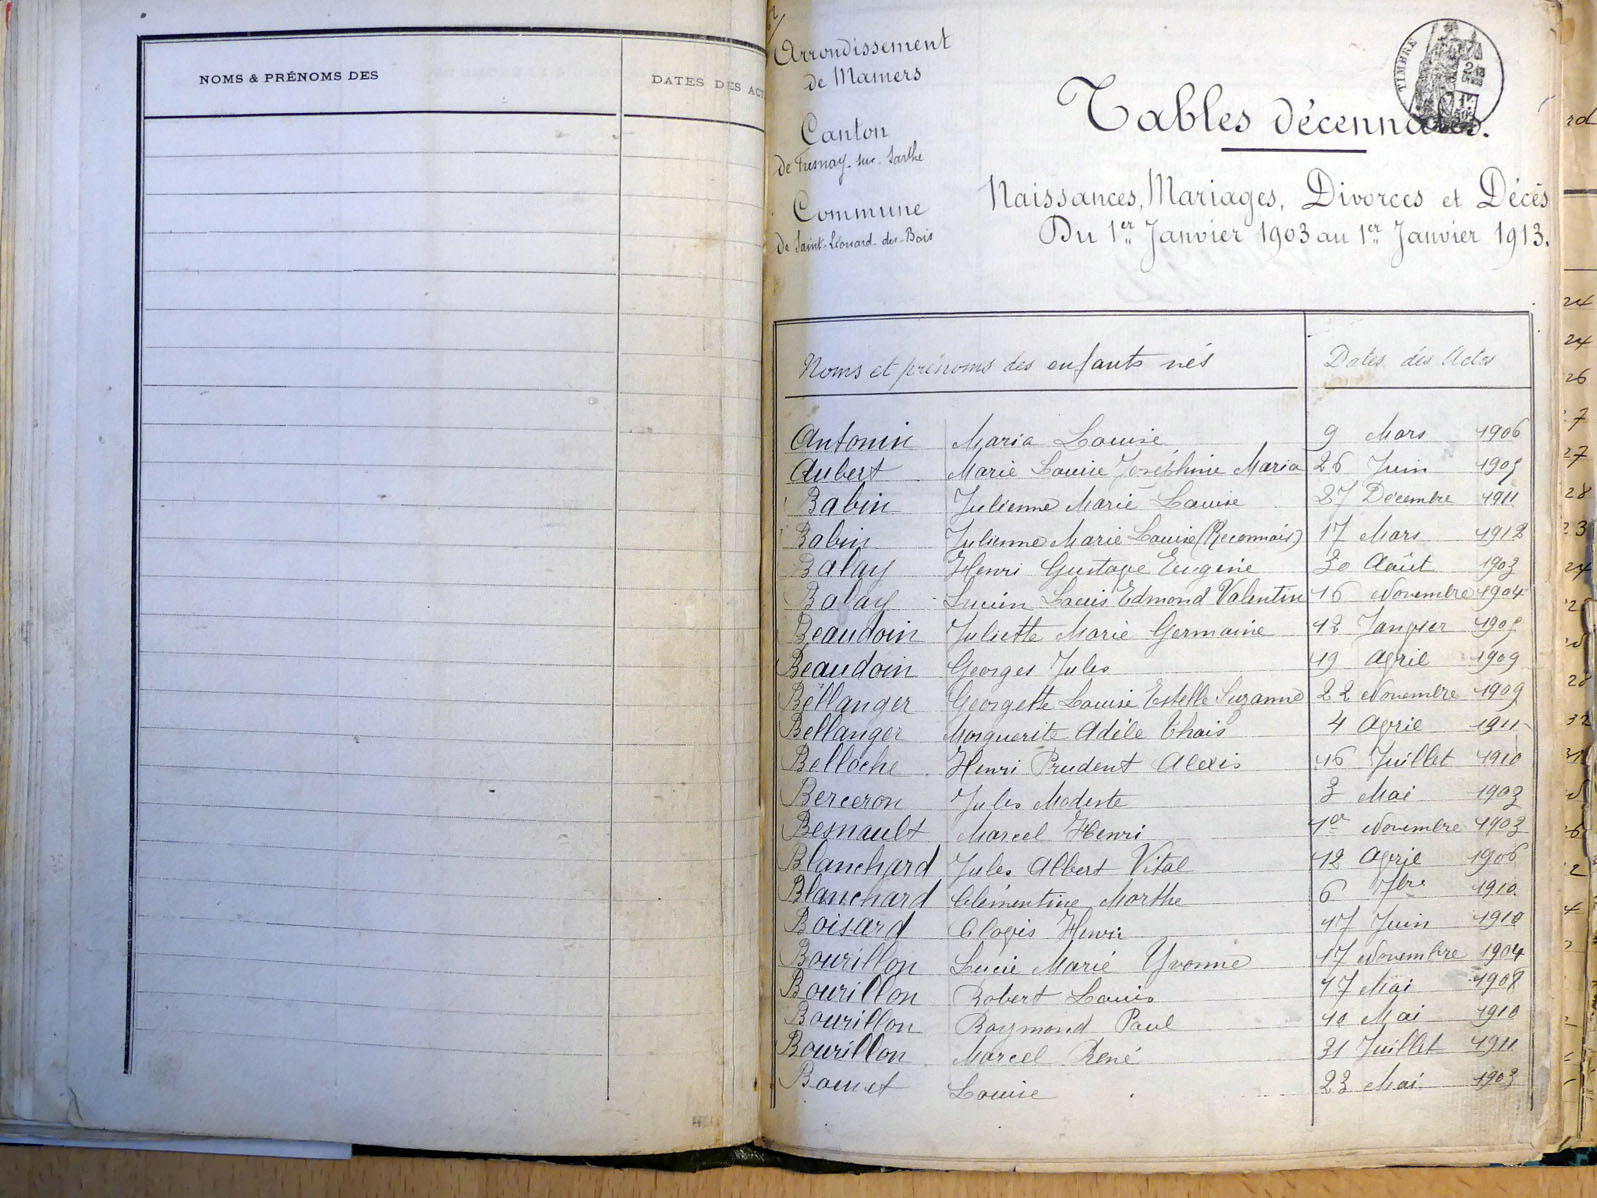 NOMS & PRÉNOMS DES
DATES DES ACT
Arrondissement
de Mamers
Canton
de Fresnay-sur-Sarthe
Commune
de Saint-Léonard-des-Bois
TIMBRE
Tables décennales.
Naissances, Mariages, Divorces et Décès
Du 1er Janvier 1903 au 1er Janvier 1913.
Noms et prénoms des enfants nés Dates des Actes
Antonin Maria Louise 9 Mars 1906
Aubert Marie Louise Joséphine Maria 26 Juin 1905
Babin Julienne Marie Louise 27 Décembre 1911
Babin Julienne Marie Louise (Reconnais) 17 Mars 1912
Balay Henri Gustave Eugène 30 Août 1903
Balay Lucien Louis Edmond Valentin 16 Novembre 1904
Beaudoin Juliette Marie Germaine 12 Janvier 1905
Beaudoin Georges Jules 19 Avril 1909
Bellanger Georgette Louise Estelle Suzanne 22 Novembre 1909
Bellanger Marguerite Adèle Thaïs 4 Avril 1911
Belloche Henri Prudent Alexis 16 Juillet 1910
Berceron Jules Modeste 3 Mai 1903
Besnault Marcel Henri 1er Novembre 1903
Blanchard Jules Albert Vital 12 Avril 1906
Blanchard Clémentine Marthe 6 7bre 1910
Boisard Clovis Henri 17 Juin 1910
Bourillon Lucie Marie Yvonne 17 Novembre 1904
Bourillon Robert Louis 17 Mai 1908
Bourillon Raymond Paul 10 Mai 1910
Bourillon Marcel René 31 Juillet 1911
Louise 23 Mai 1903